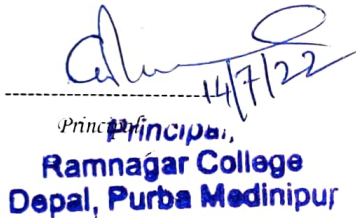 14/7/22
Principal
Principal,
Ramnagar College
Depal, Purba Medinipur